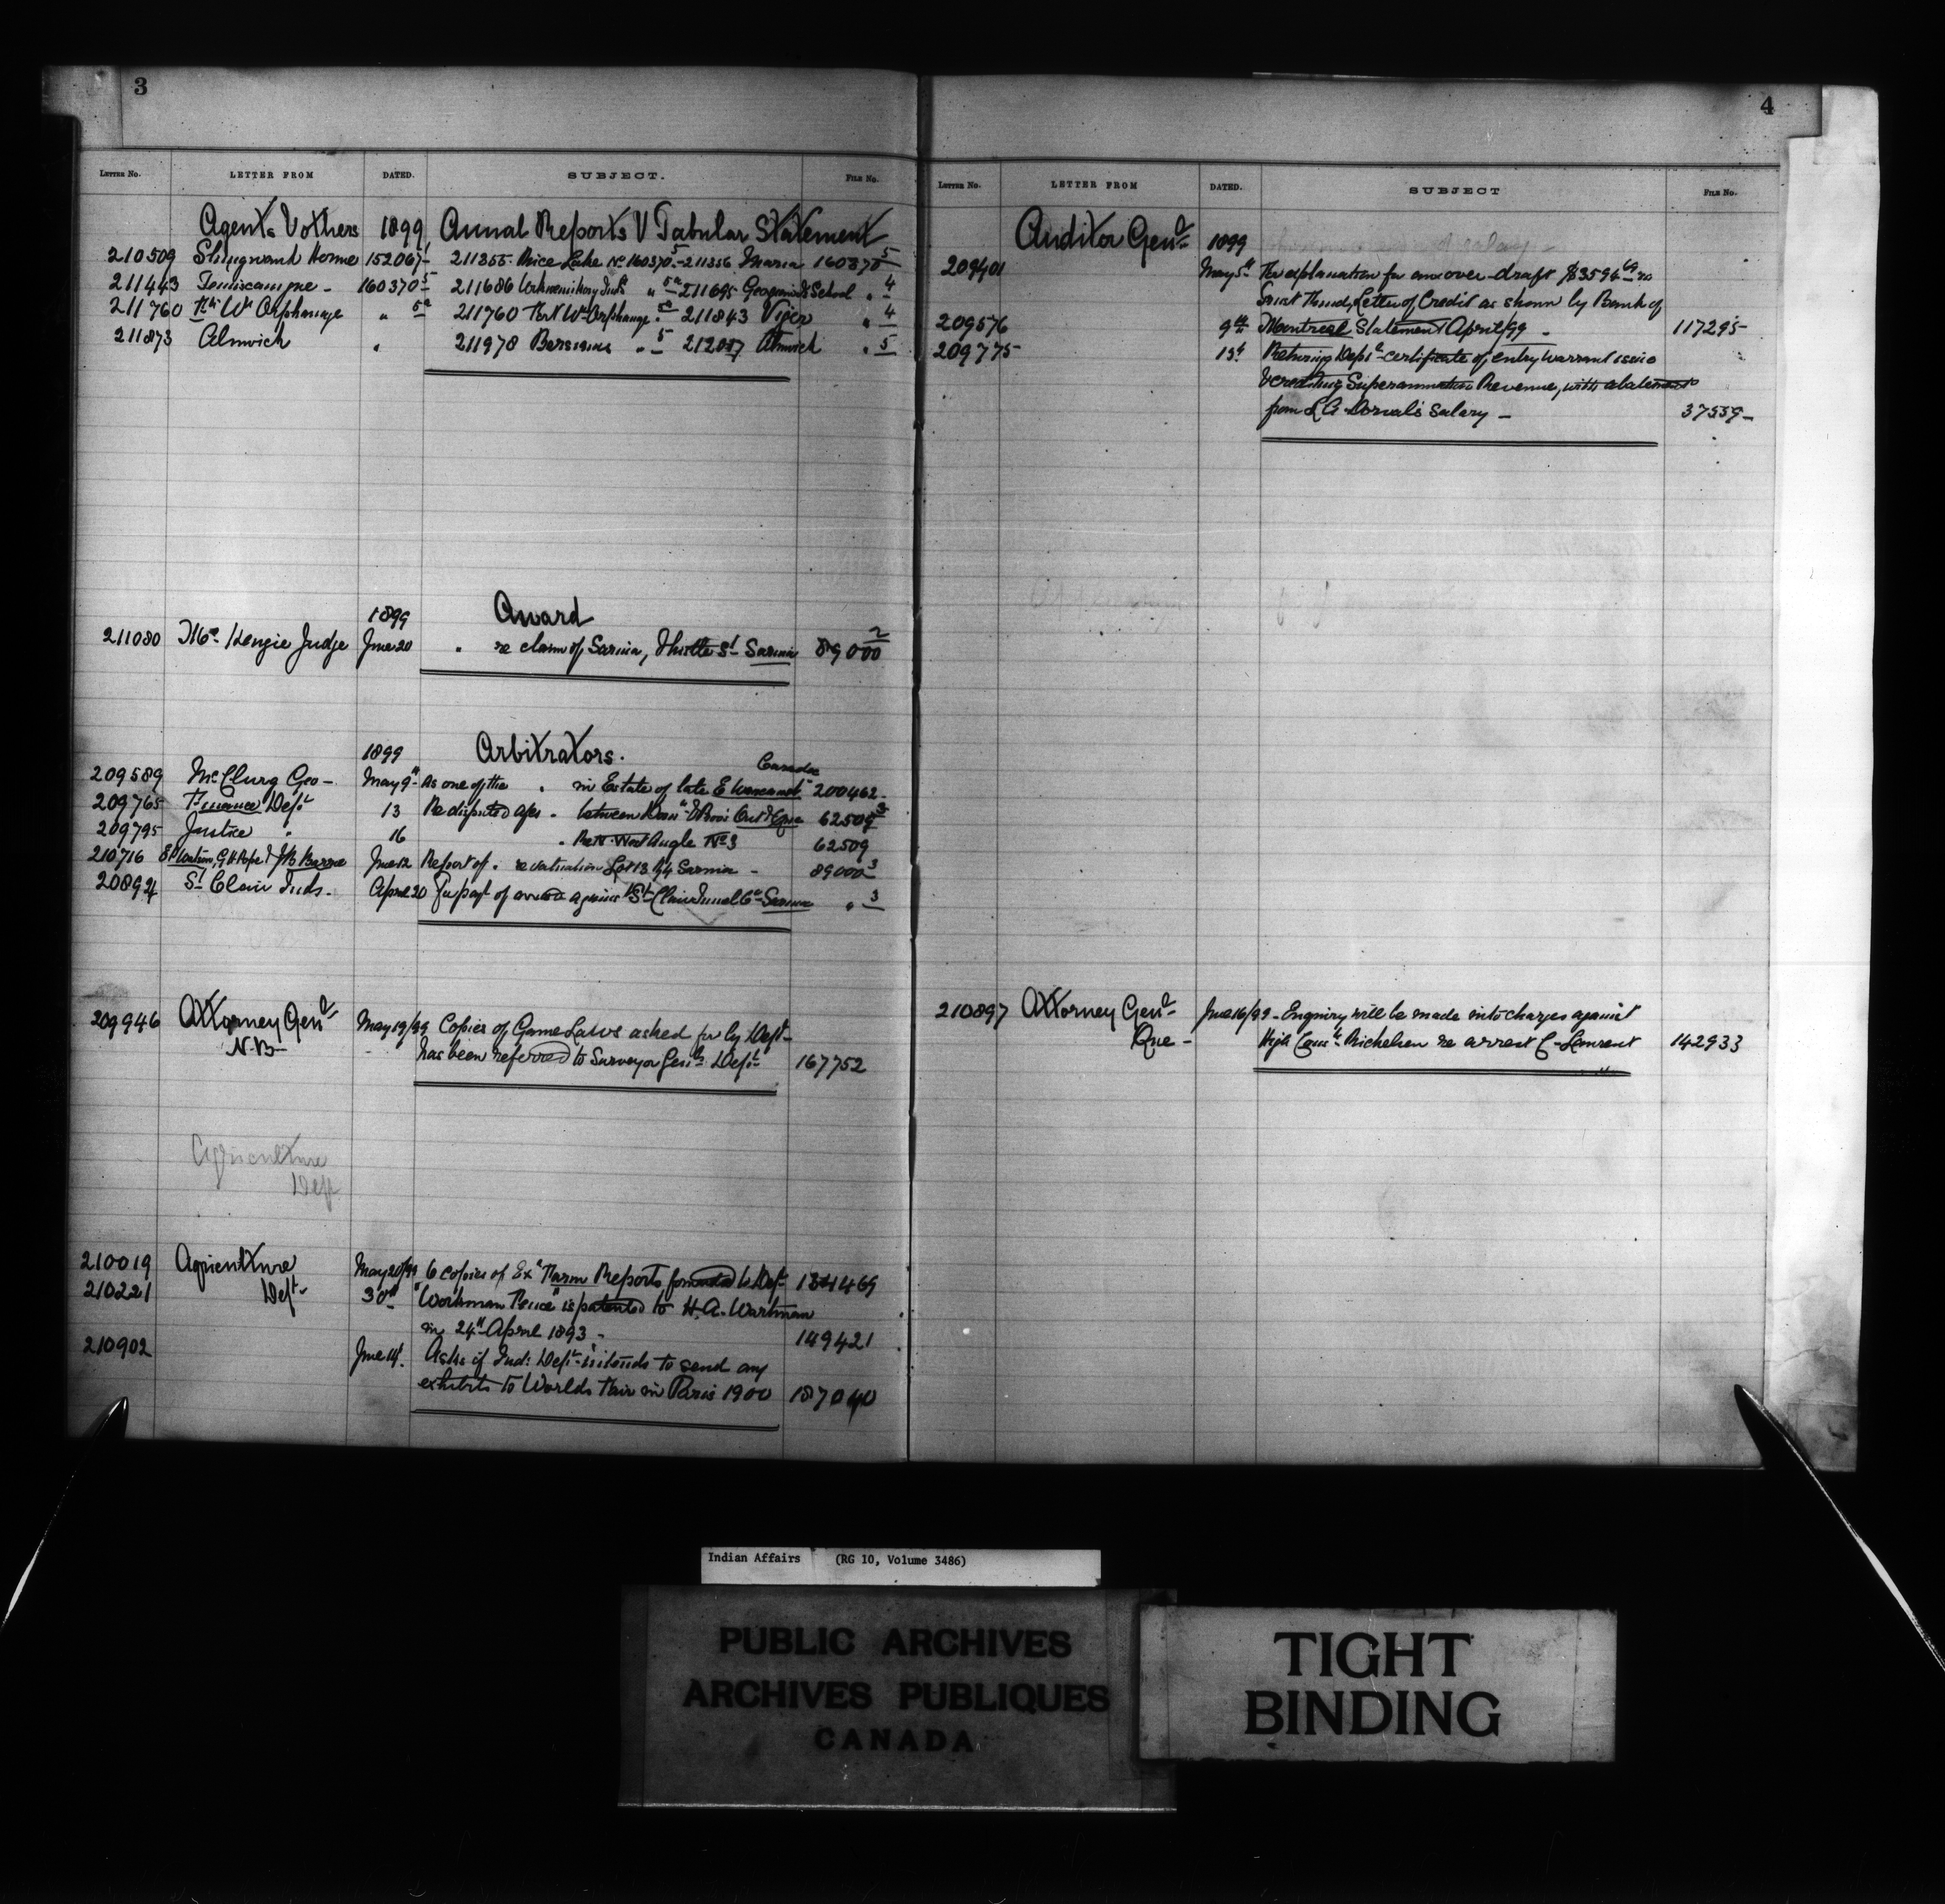 3
LETTER NO. LETTER FROM DATED. SUBJECT. FILE NO.
Agents & others 1899 Annual Reports & Tabular Statement
210509 Shingwauk Home 152067- 211355. Rice Lake No 160370.5-211356 Maria 160370 5
211443 Temiscamgue - 160370 5 211686 Inds " 5a 211695 School " 4
211760 Ft Wm Orphanage " 5a 211760 Fort Wm Orphanage " 5a 211843 Viger " 4
211873 Alnwick " 211978 Bersimis " 5 212007 Alnwick " 5
1899 Award
211080 McKenzie Judge June 20 " re claim of Sarnia, St Sarnia 89000 2
1899 Arbitrators.
Canada
209589 McClurg Geo - May 9th As one of the " in Estate of late E 200462-
209765 Finance Dept 13 Re disputed a/cs " between Dom n & Prov Ont & Que 62509 3
209795 Justice " 16 " Re N. West Angle No 3 62509
210716 Watson, G H Pope & J B June 12 Report of " re valuation Lot 13 Sarnia - 89000 3
208924 St Clair Inds. April 20 For payt of award against St Clair Tunnel Co Sarnia " 3
209946 Attorney Genl May 19/99 Copies of Game Laws asked for by Dept -
N.B- has been referred to Surveyor Genls Dept 167752
Agriculture
Dept
210019 Agriculture May 20/99 6 copies of Exl Farm Reports forwarded to Dept 131469
210221 Dept- 30th "Workman Fence" is patented to H. A. Wartman
in 24th April 1893 - 149421
210902 June 14. Asks if Ind: Dept intends to send any
exhibits to Worlds Fair in Paris 1900 187040
4
LETTER NO. LETTER FROM DATED. SUBJECT FILE NO.
Auditor Genl 1899
209401 May 5th For explanation for an over-draft $3594 69 re
Trust Fund, Letter of Credit as shown by Bank of
209576 9th Montreal Statement April/99 - 117295-
209775 13th Returning Dept certificate of entry warrant issue
crediting Superannuation Revenue, with abatement
from L A Dorval's salary - 37559-
210897 Attorney Genl June 16/99 - Enquiry will be made into charges against
Que - High Const Michelsen re arrest C- Laurent 142933
Indian Affairs (RG 10, Volume 3486)
PUBLIC ARCHIVES
ARCHIVES PUBLIQUES
CANADA
TIGHT
BINDING